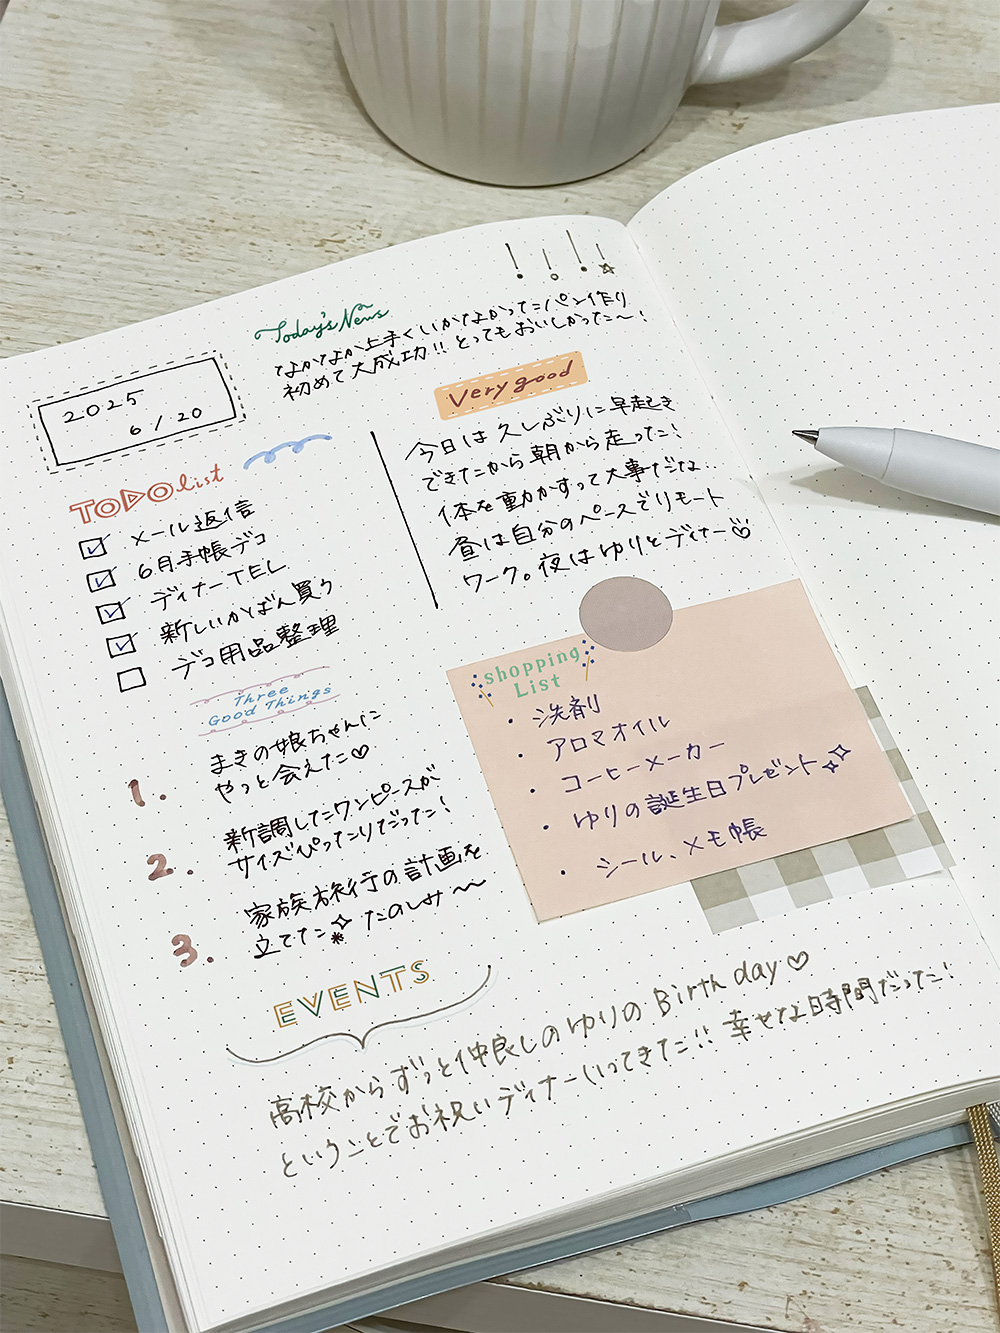 Today's News
なかなか上手くいかなかったパン作り
初めて大成功!! とってもおいしかった〜!
2025
6/20
Very good
今日は久しぶりに早起き
できたから朝から走った!
体を動かすって大事だな..
昼は自分のペースでリモート
ワーク。夜はゆりとディナー♡
TODO list
☑ メール返信
☑ 6月手帳デコ
☑ ディナーTEL
☑ 新しいかばん買う
☐ デコ用品整理
Three
Good Things
1. まきの娘ちゃんに
やっと会えた♡
2. 新調したワンピースが
サイズぴったりだった!
3. 家族旅行の計画を
立てた たのしみ〜〜
shopping
List
・洗剤
・アロマオイル
・コーヒーメーカー
・ゆりの誕生日プレゼント
・シール、メモ帳
EVENTS
高校からずっと仲良しのゆりのBirth day♡
ということでお祝いディナーいってきた!! 幸せな時間だった!